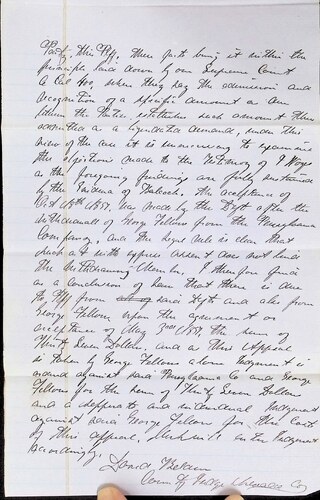 Part of this Plff. these facts bring it within the
principle laid down by our Supreme Court
Cal 40, when they say the admission and
recognition of a specific amount as due
between the parties establishes such amount then
admitted as a liquidated demand, under this
view of the case it is unnecessary to examine
the objections made to the testimony of J
as the foregoing findings are fully sustained
by the evidence of The acceptance of
Oct 1857, was made by the Deft after the
withdrawal of George Fellows from the Pennsylvania
Company, and the legal rule is clear that
such act with express assent does not bind
the withdrawing member. I therefore find
as a conclusion of law that there is due
to Plff from said Deft and also from
George Fellows upon the agreement or
acceptance of May 3rd 1857, the sum of
Thirty Seven Dollars, and as this appeal
is taken by George Fellows alone judgment is
against said Pennsylvania Co and George
Fellows for the sum of Thirty Seven Dollars
and a separate and individual judgment
against said George Fellows for the Costs
of this appeal, enter judgment
Accordingly.
David
County Judge Co